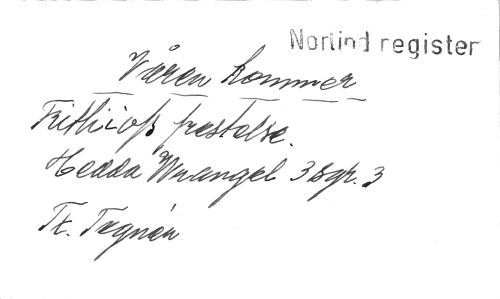 Norlind register
Våren kommer
Frithiofs frestelse.
Hedda Wrangel 3 Bgr. 3
Tk. Tegnér